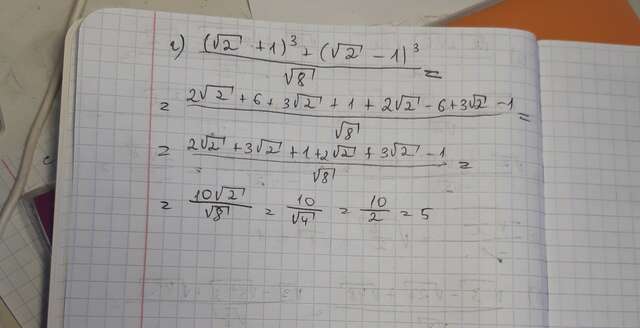 г) ((√2 + 1)³ + (√2 - 1)³)/√8 =
= (2√2 + 6 + 3√2 + 1 + 2√2 - 6 + 3√2 - 1)/√8 =
= (2√2 + 3√2 + 1 + 2√2 + 3√2 - 1)/√8 =
= 10√2/√8 = 10/√4 = 10/2 = 5